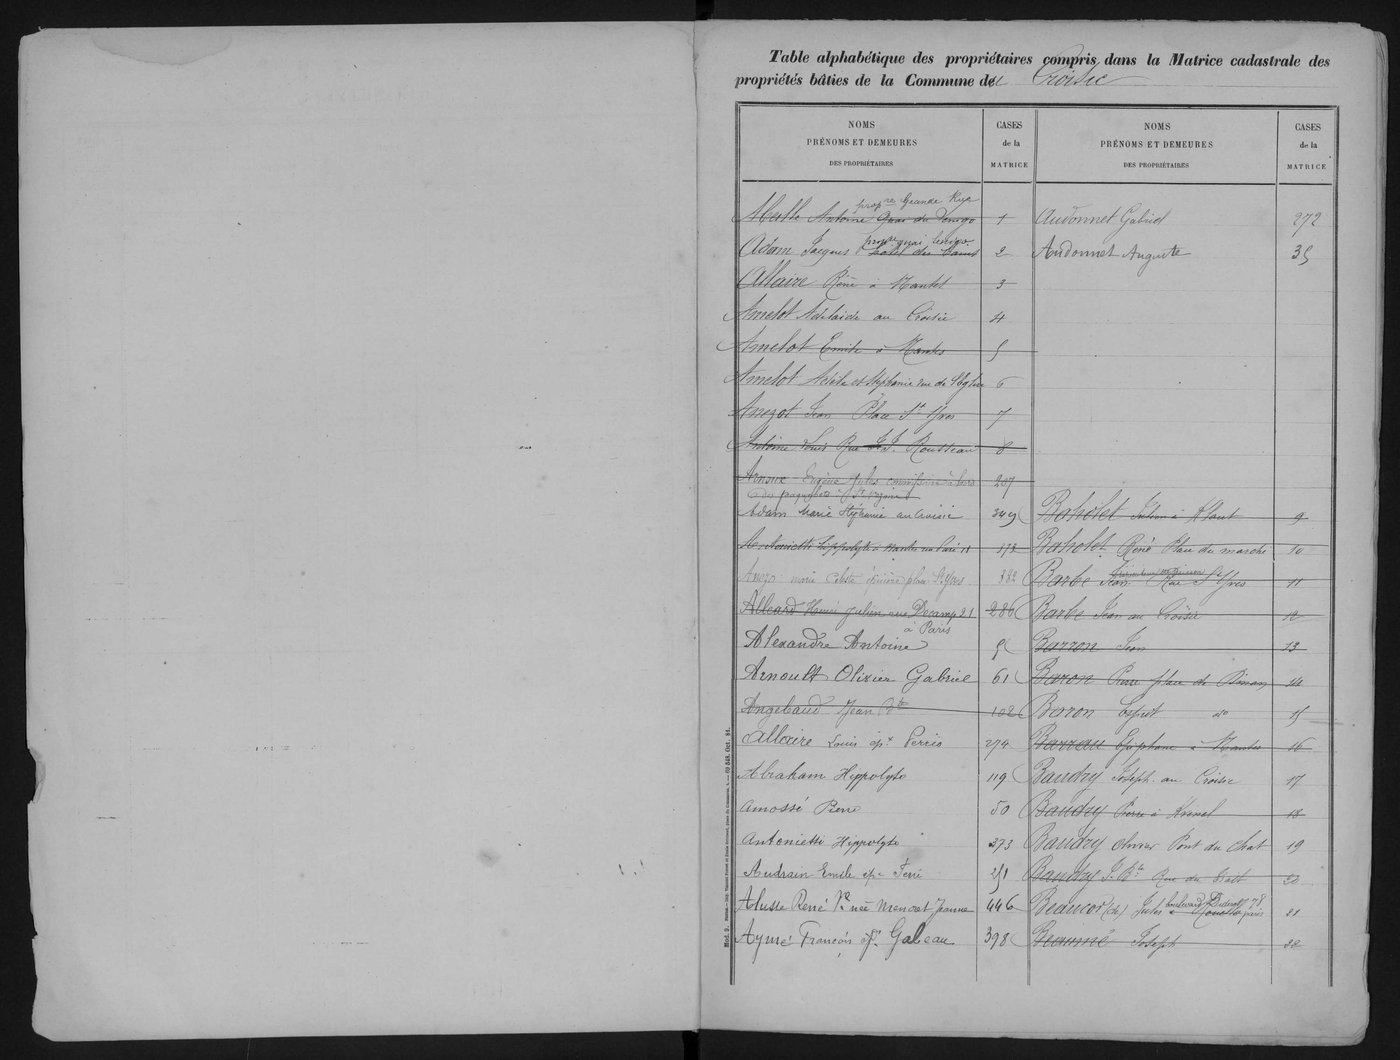 Table alphabétique des propriétaires compris dans la Matrice cadastrale des
propriétés bâties de la Commune du Croisic
NOMS
PRÉNOMS ET DEMEURES
DES PROPRIÉTAIRES
CASES
de la
MATRICE
propre Grande Rue
Antoine Quai du Lenigo 1
Adam Jacques 2
Allaire René à Nantes 3
Amelot Adélaïde au Croisic 4
Amelot Emile à Nantes 5
Amelot Adèle et Stéphanie rue de l'Eglise 6
Anezot Jean Place St Yves 7
Antoine Louis Rue J.J. Rousseau 8
Arnoux Eugène Jules 207
Adam Marie Stéphanie au Croisic 349
Antonietti Hippolyte à Nantes 373
place St Yves 382
Allard Henri Julien rue Decamp 21 286
à Paris
Alexandre Antoine
Arnoult Olivier Gabriel 61
Angebaud Jean Bte 102
Allaire Louis épx Perrio 274
Abraham Hippolyte 119
Amossé Pierre 50
Antonietti Hippolyte 373
Audrain Emile épx Ferré 251
Alusse René Ve née Menoret Jeanne 446
Aymé François épx Gabeau 398
NOMS
PRÉNOMS ET DEMEURES
DES PROPRIÉTAIRES
CASES
de la
MATRICE
Audonnet Gabriel 272
Audonnet Auguste 35
Baholet 9
Baholet René Place du marché 10
Barbe Jean Rue St Yves 11
Barbe Jean au Croisic 12
Barron Jean 13
Baron Pierre place de Dinan 14
Baron do 15
Barreau Epiphane à Nantes 16
Baudry Joseph au Croisic 17
Baudry Pierre à 18
Baudry Olivier Pont du Chat 19
Baudry J. Bte Rue du 20
boulevard Diderot 78
Beaucor (de) Jules à Paris 21
Beaumé Joseph 22